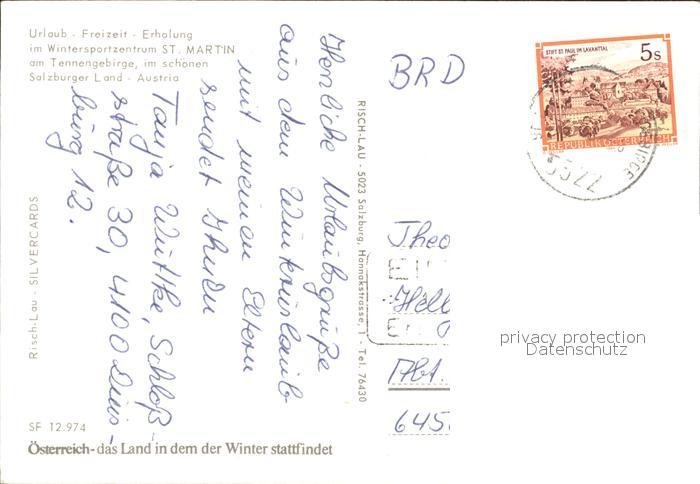 Urlaub - Freizeit - Erholung
im Wintersportzentrum ST. MARTIN
am Tennengebirge, im schönen
Salzburger Land - Austria
Herzliche Urlaubsgrüße
aus dem Winterurlaub
mit meinen Eltern
sendet Ihnen
Tanja Wuttke, Schloß-
straße 30, 4100 Duis-
burg 12.
Risch-Lau - SILVERCARDS
SF 12.974
Österreich - das Land in dem der Winter stattfindet
RISCH-LAU - 5023 Salzburg, Hannakstrasse, 1 - Tel. 76430
BRD
STIFT ST. PAUL IM LAVANTTAL
5s
REPUBLIK ÖSTERREICH
5522
Theo
EI
Hell
EI
Abt.
645
privacy protection
Datenschutz